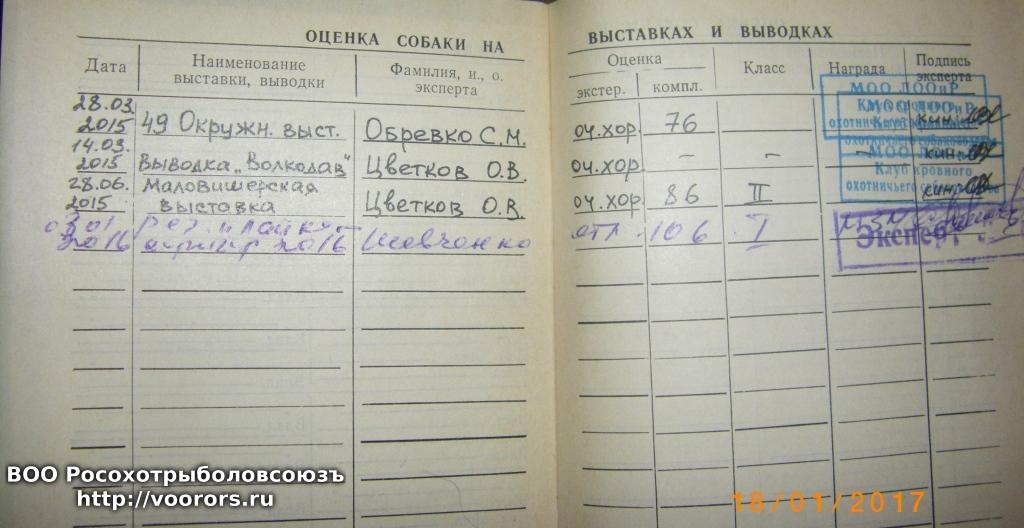 ОЦЕНКА СОБАКИ НА ВЫСТАВКАХ И ВЫВОДКАХ
Дата Наименование выставки, выводки Фамилия, и., о. эксперта Оценка экстер. компл. Класс Награда Подпись эксперта
28.03. 2015 49 Окружн. выст. Обревко С.М. оч.хор. 76
14.03. 2015 Выводка „Волкодав" Цветков О.В. оч.хор. – – –
28.06. 2015 Маловишерская выставка Цветков О.В. оч.хор. 86 II
2016 2016 Шевченко отл 106 I
МОО ЛООиР
Клуб кровного
охотничьего
Эксперт
ВОО Росохотрыболовсоюзъ
http://voorors.ru
18/01/2017